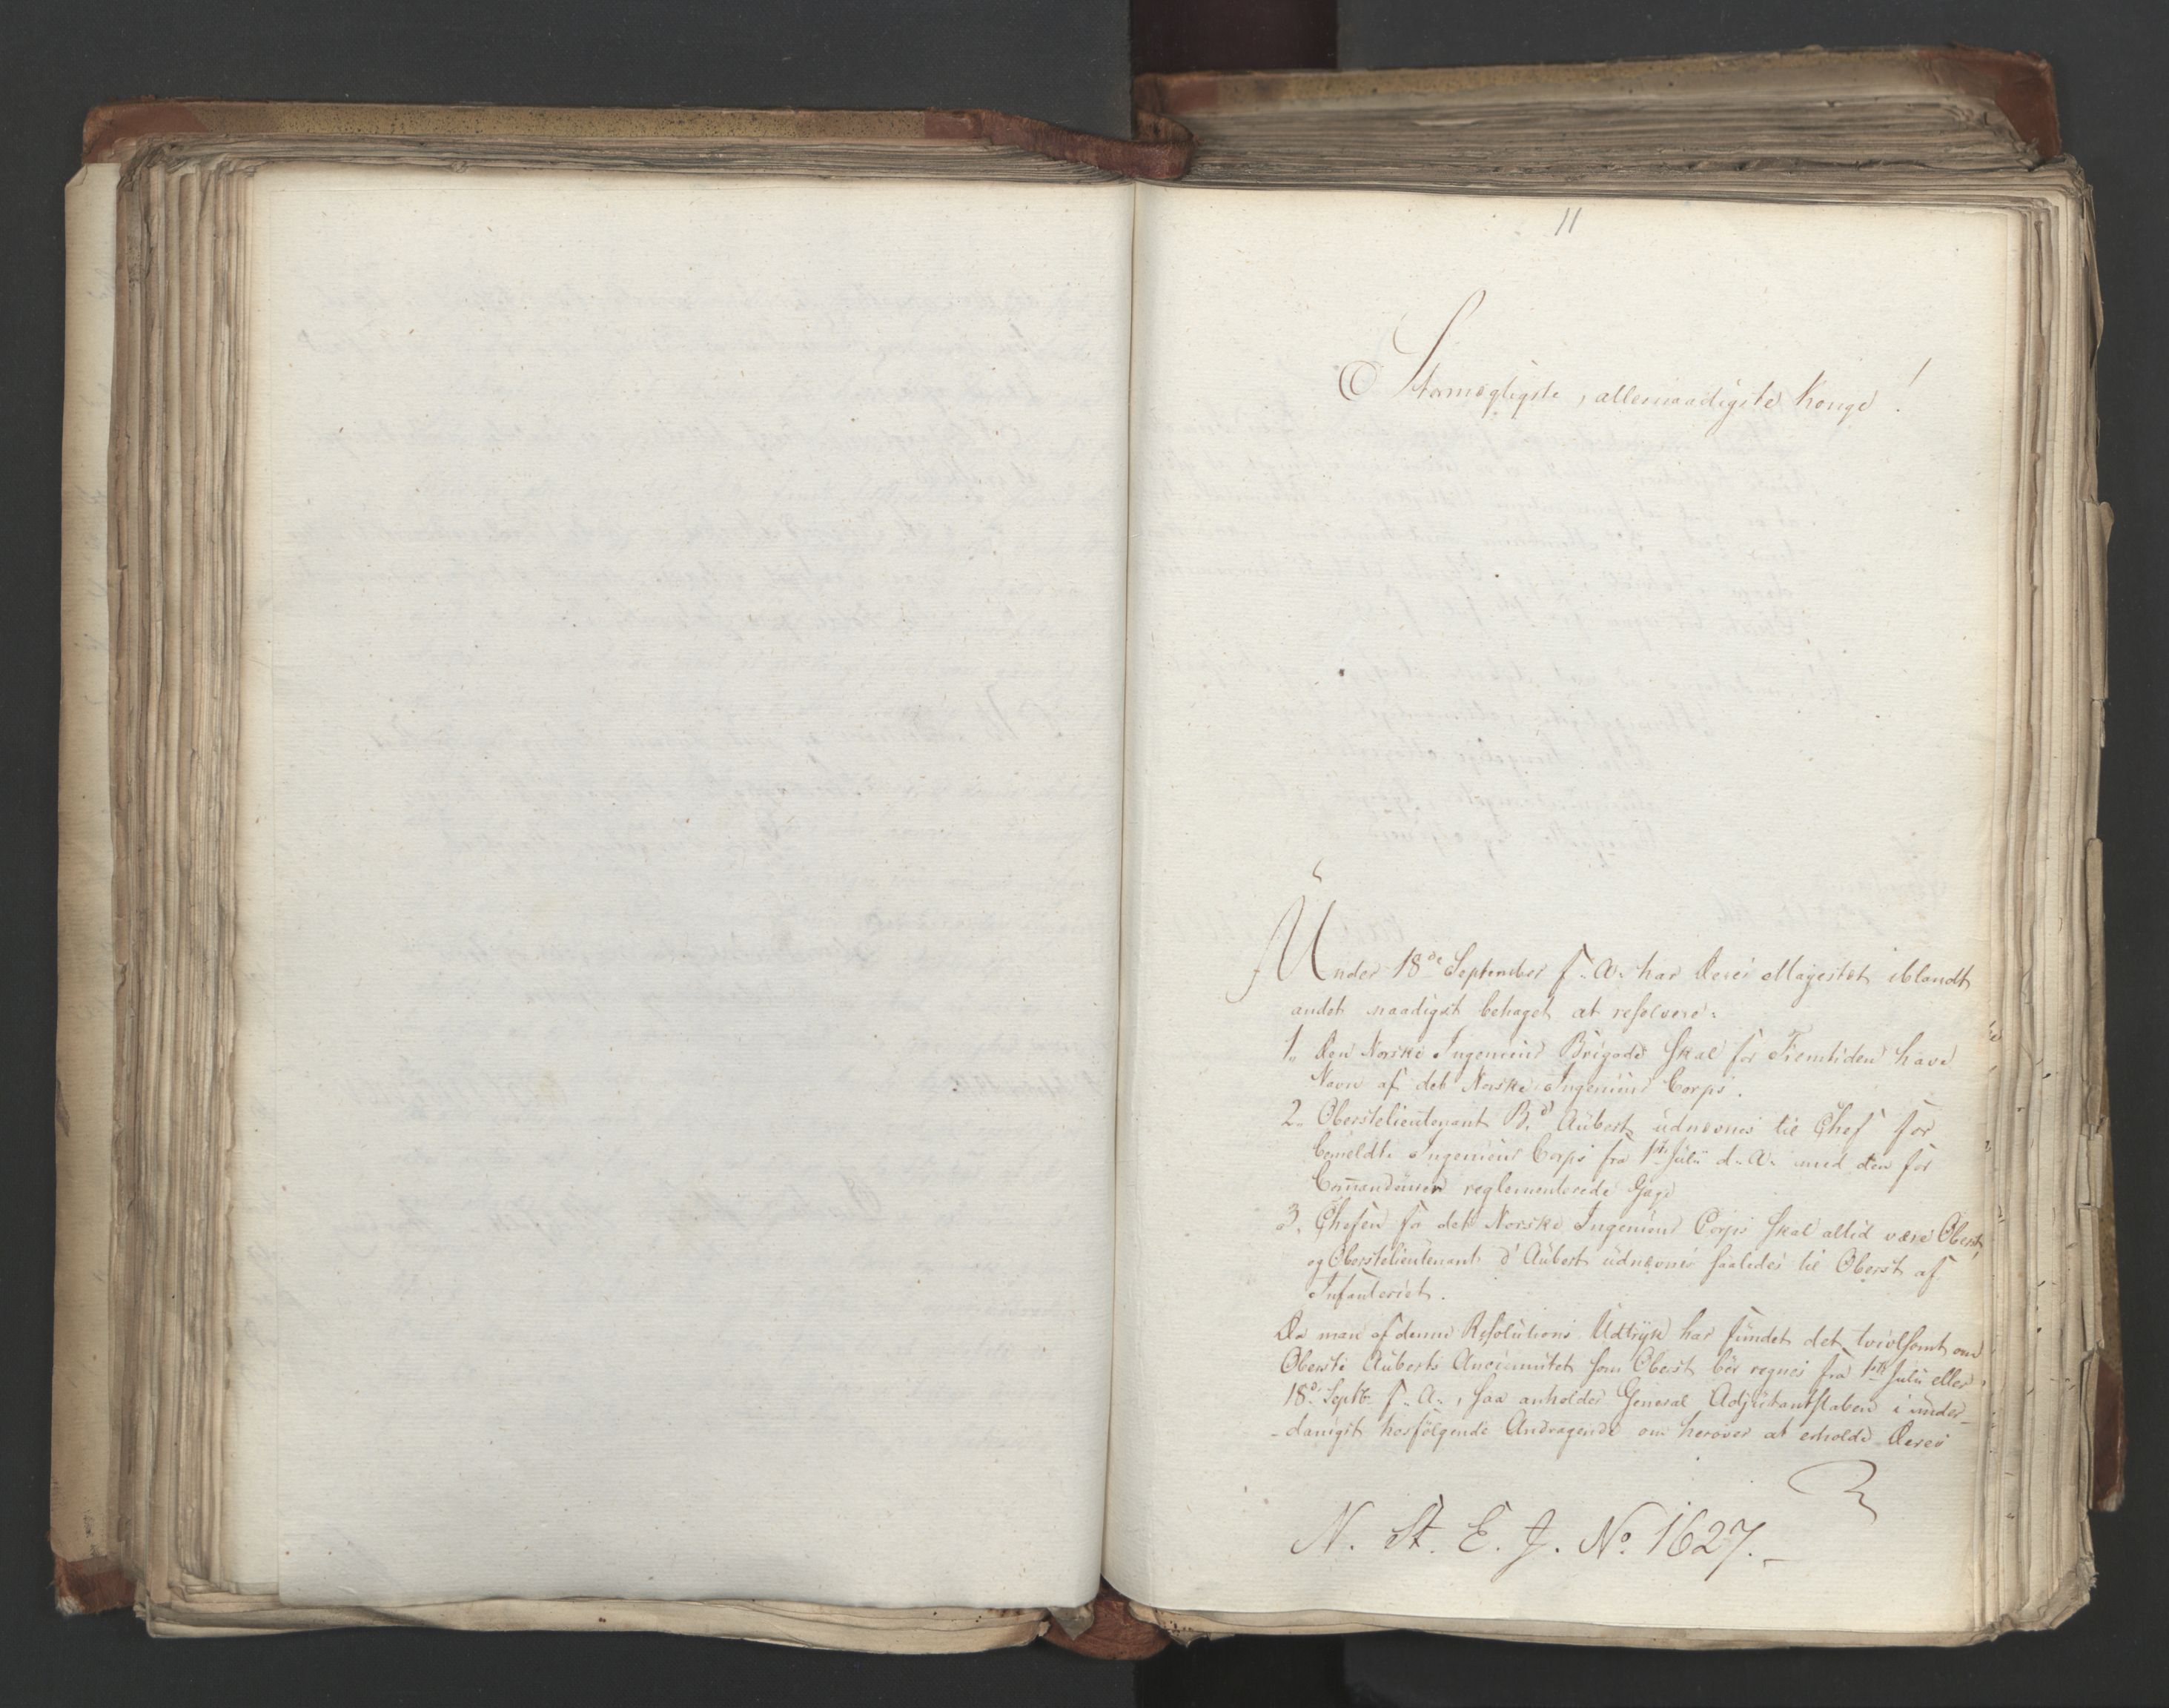 11
Stormægtigste, allernaadigste Konge!
Under 18de September f. A. har Deres Majestæt iblandt
andet naadigst behaget at resolvere:
1. Den Norske Ingenieur Brigade skal for Fremtiden have
Navn af det Norske Ingenieur Corps.
2. Oberstelieutenant B. d'Aubert udnævnes til Chef for
bemeldte Ingenieur Corps fra 1ste Julii d. A. med den for
Com̄andeuren reglementerede Gage
3. Chefen for det Norske Ingenieur Corps skal altid være Oberst,
og Oberstelieutenant d'Aubert udnævnes saaledes til Oberst af
Infanteriet.
Da man af denne Resolutions Udtryk har fundet det tvivlsomt om
Oberste Auberts Anciennitet som Oberst bör regnes fra 1ste Julii eller
18de Septbr f. A., saa anholder General Adjutantstaben i under-
-danigst hosfölgende Andragende om herover at erholde Deres
N. St. E. J. No. 1627.-